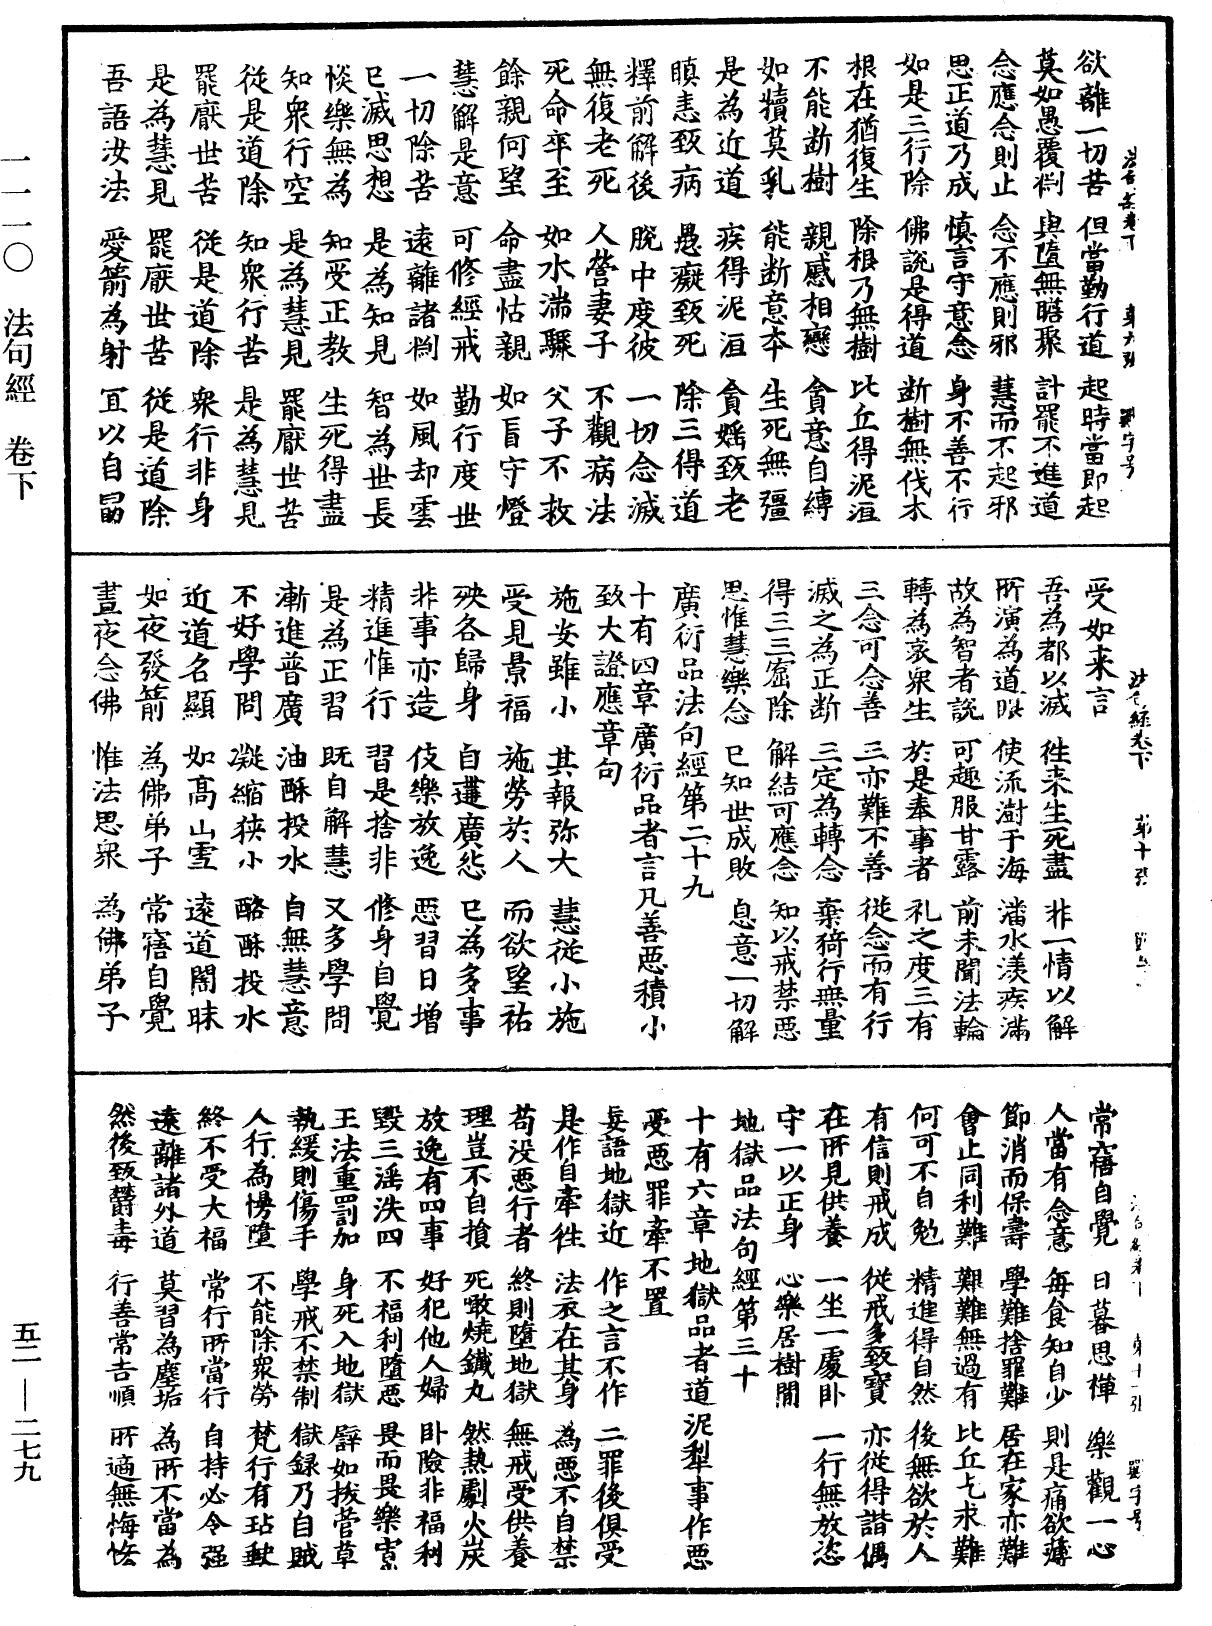 欲離一切苦　但當勤行道　起時當即起
莫如愚覆㓮　與墮無瞻聚　計罷不進道
念應念則止　念不應則邪　慧而不起邪
思正道乃成　慎言守意念　身不善不行
如是三行除　佛說是得道　斷樹無伐木
根在猶復生　除根乃無樹　比丘得泥洹
不能斷樹　親慼相戀　貪意自縛
如犢莫乳　能斷意夲　生死無彊
是為近道　疾得泥洹　貪婬致老
瞋恚致病　愚癡致死　除三得道
釋前解後　脫中度彼　一切念滅
無復老死　人營妻子　不觀病法
死命卒至　如水湍驟　父子不救
餘親何望　命盡怙親　如盲守燈
慧解是意　可修經戒　勤行度世
一切除苦　遠離諸㓮　如風却雲
已滅思想　是為知見　智為世長
惔樂無為　知受正教　生死得盡
知衆行空　是為慧見　罷厭世苦
從是道除　知衆行苦　是為慧見
罷厭世苦　從是道除　衆行非身
是為慧見　罷厭世苦　從是道除
吾語汝法　愛箭為射　宜以自勗
受如来言
吾為都以滅　往来生死盡　非一情以解
所演為道眼　使流澍于海　潘水漾疾滿
故為智者說　可趣服甘露　前未聞法輪
轉為哀衆生　於是奉事者　礼之度三有
三念可念善　三亦難不善　從念而有行
滅之為正斷　三定為轉念　棄猗行無量
得三三窟除　解結可應念　知以戒禁惡
思惟慧樂念　已知世成敗　息意一切解
廣衍品法句經第二十九
十有四章廣衍品者言凡善惡積小
致大證應章句
施安雖小　其報弥大　慧從小施
受見景福　施勞於人　而欲望祐
殃各歸身　自遘廣怨　已為多事
非事亦造　伎樂放逸　惡習日增
精進惟行　習是捨非　修身自覺
是為正習　既自解慧　又多學問
漸進普廣　油酥投水　自無慧意
不好學問　凝縮狹小　酪酥投水
近道名顯　如高山雪　遠道闇昧
如夜發箭　為佛弟子　常寤自覺
晝夜念佛　惟法思衆　為佛弟子
常寤自覺　日暮思禪　樂觀一心
人當有念意　每食知自少　則是痛欲薄
節消而保壽　學難捨罪難　居在家亦難
會止同利難　艱難無過有　比丘乞求難
何可不自勉　精進得自然　後無欲於人
有信則戒成　從戒多致寶　亦從得諧偶
在所見供養　一坐一處卧　一行無放恣
守一以正身　心樂居樹閒
地獄品法句經第三十
十有六章地獄品者道泥犁事作惡
受惡罪牽不置
妄語地獄近　作之言不作　二罪後俱受
是作自牽往　法衣在其身　為惡不自禁
苟没惡行者　終則墮地獄　無戒受供養
理豈不自損　死噉燒鐵丸　然熱劇火炭
放逸有四事　好犯他人婦　卧險非福利
毀三淫泆四　不福利墮惡　畏而畏樂寡
王法重罰加　身死入地獄　譬如拔菅草
執緩則傷手　學戒不禁制　獄録乃自賊
人行為慢墮　不能除衆勞　梵行有玷缺
終不受大福　常行所當行　自持必令强
遠離諸外道　莫習為塵垢　為所不當為
然後致欝毒　行善常吉順　所適無悔恡
一一一〇　法句經　卷下
五二—二七九